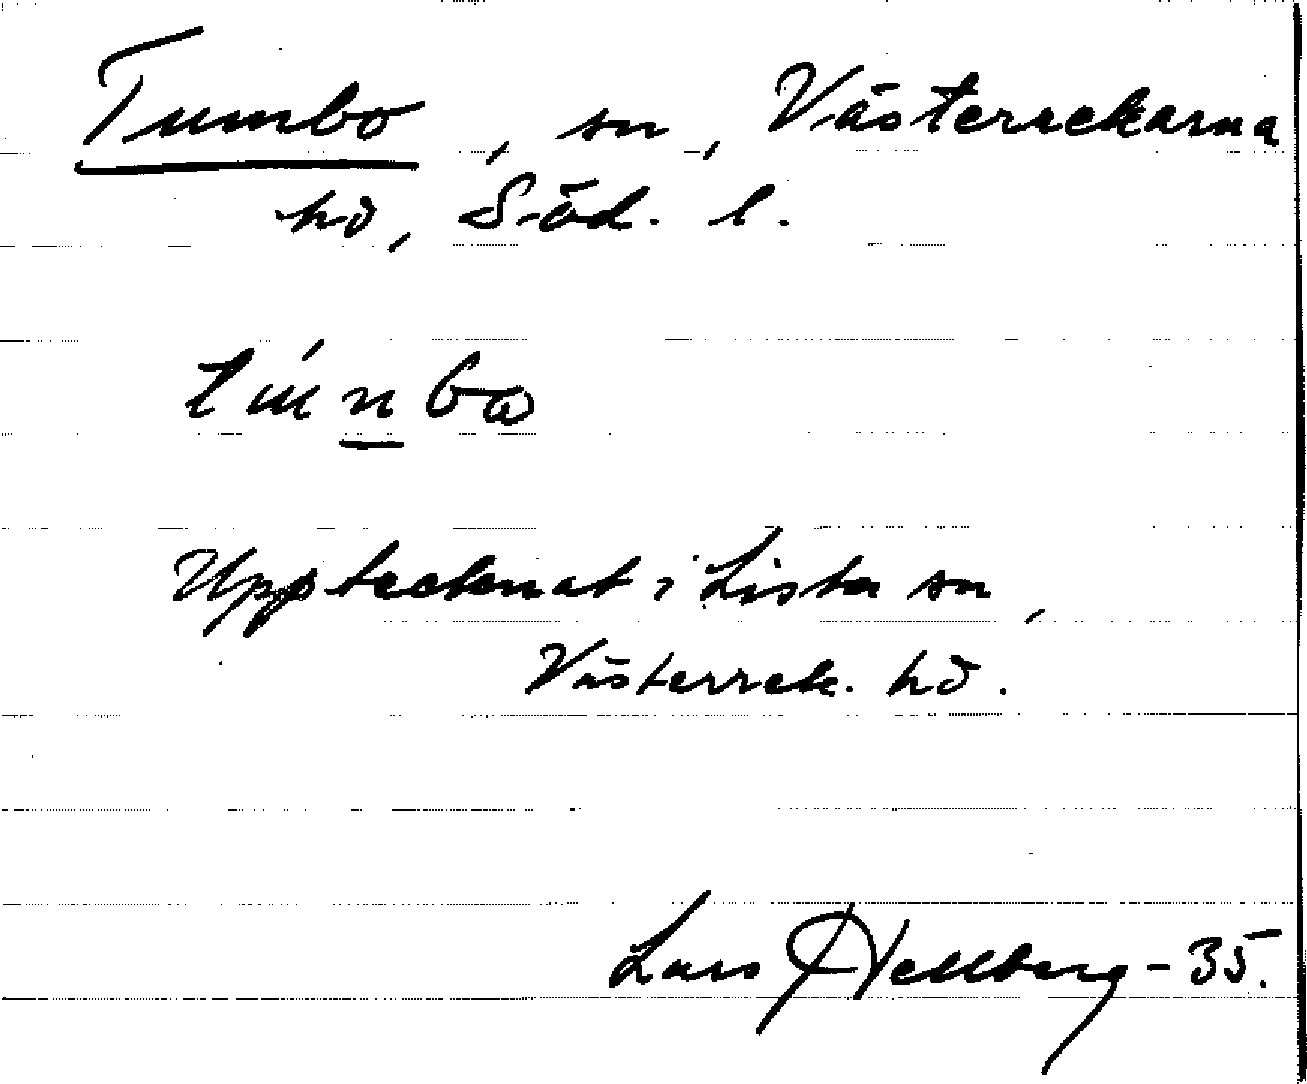 Tumbo, sn, Västerrekarna
hd, Söd. l.
Upptecknat i Lista sn,
Västerrek. hd.
Lars Hellberg -35.